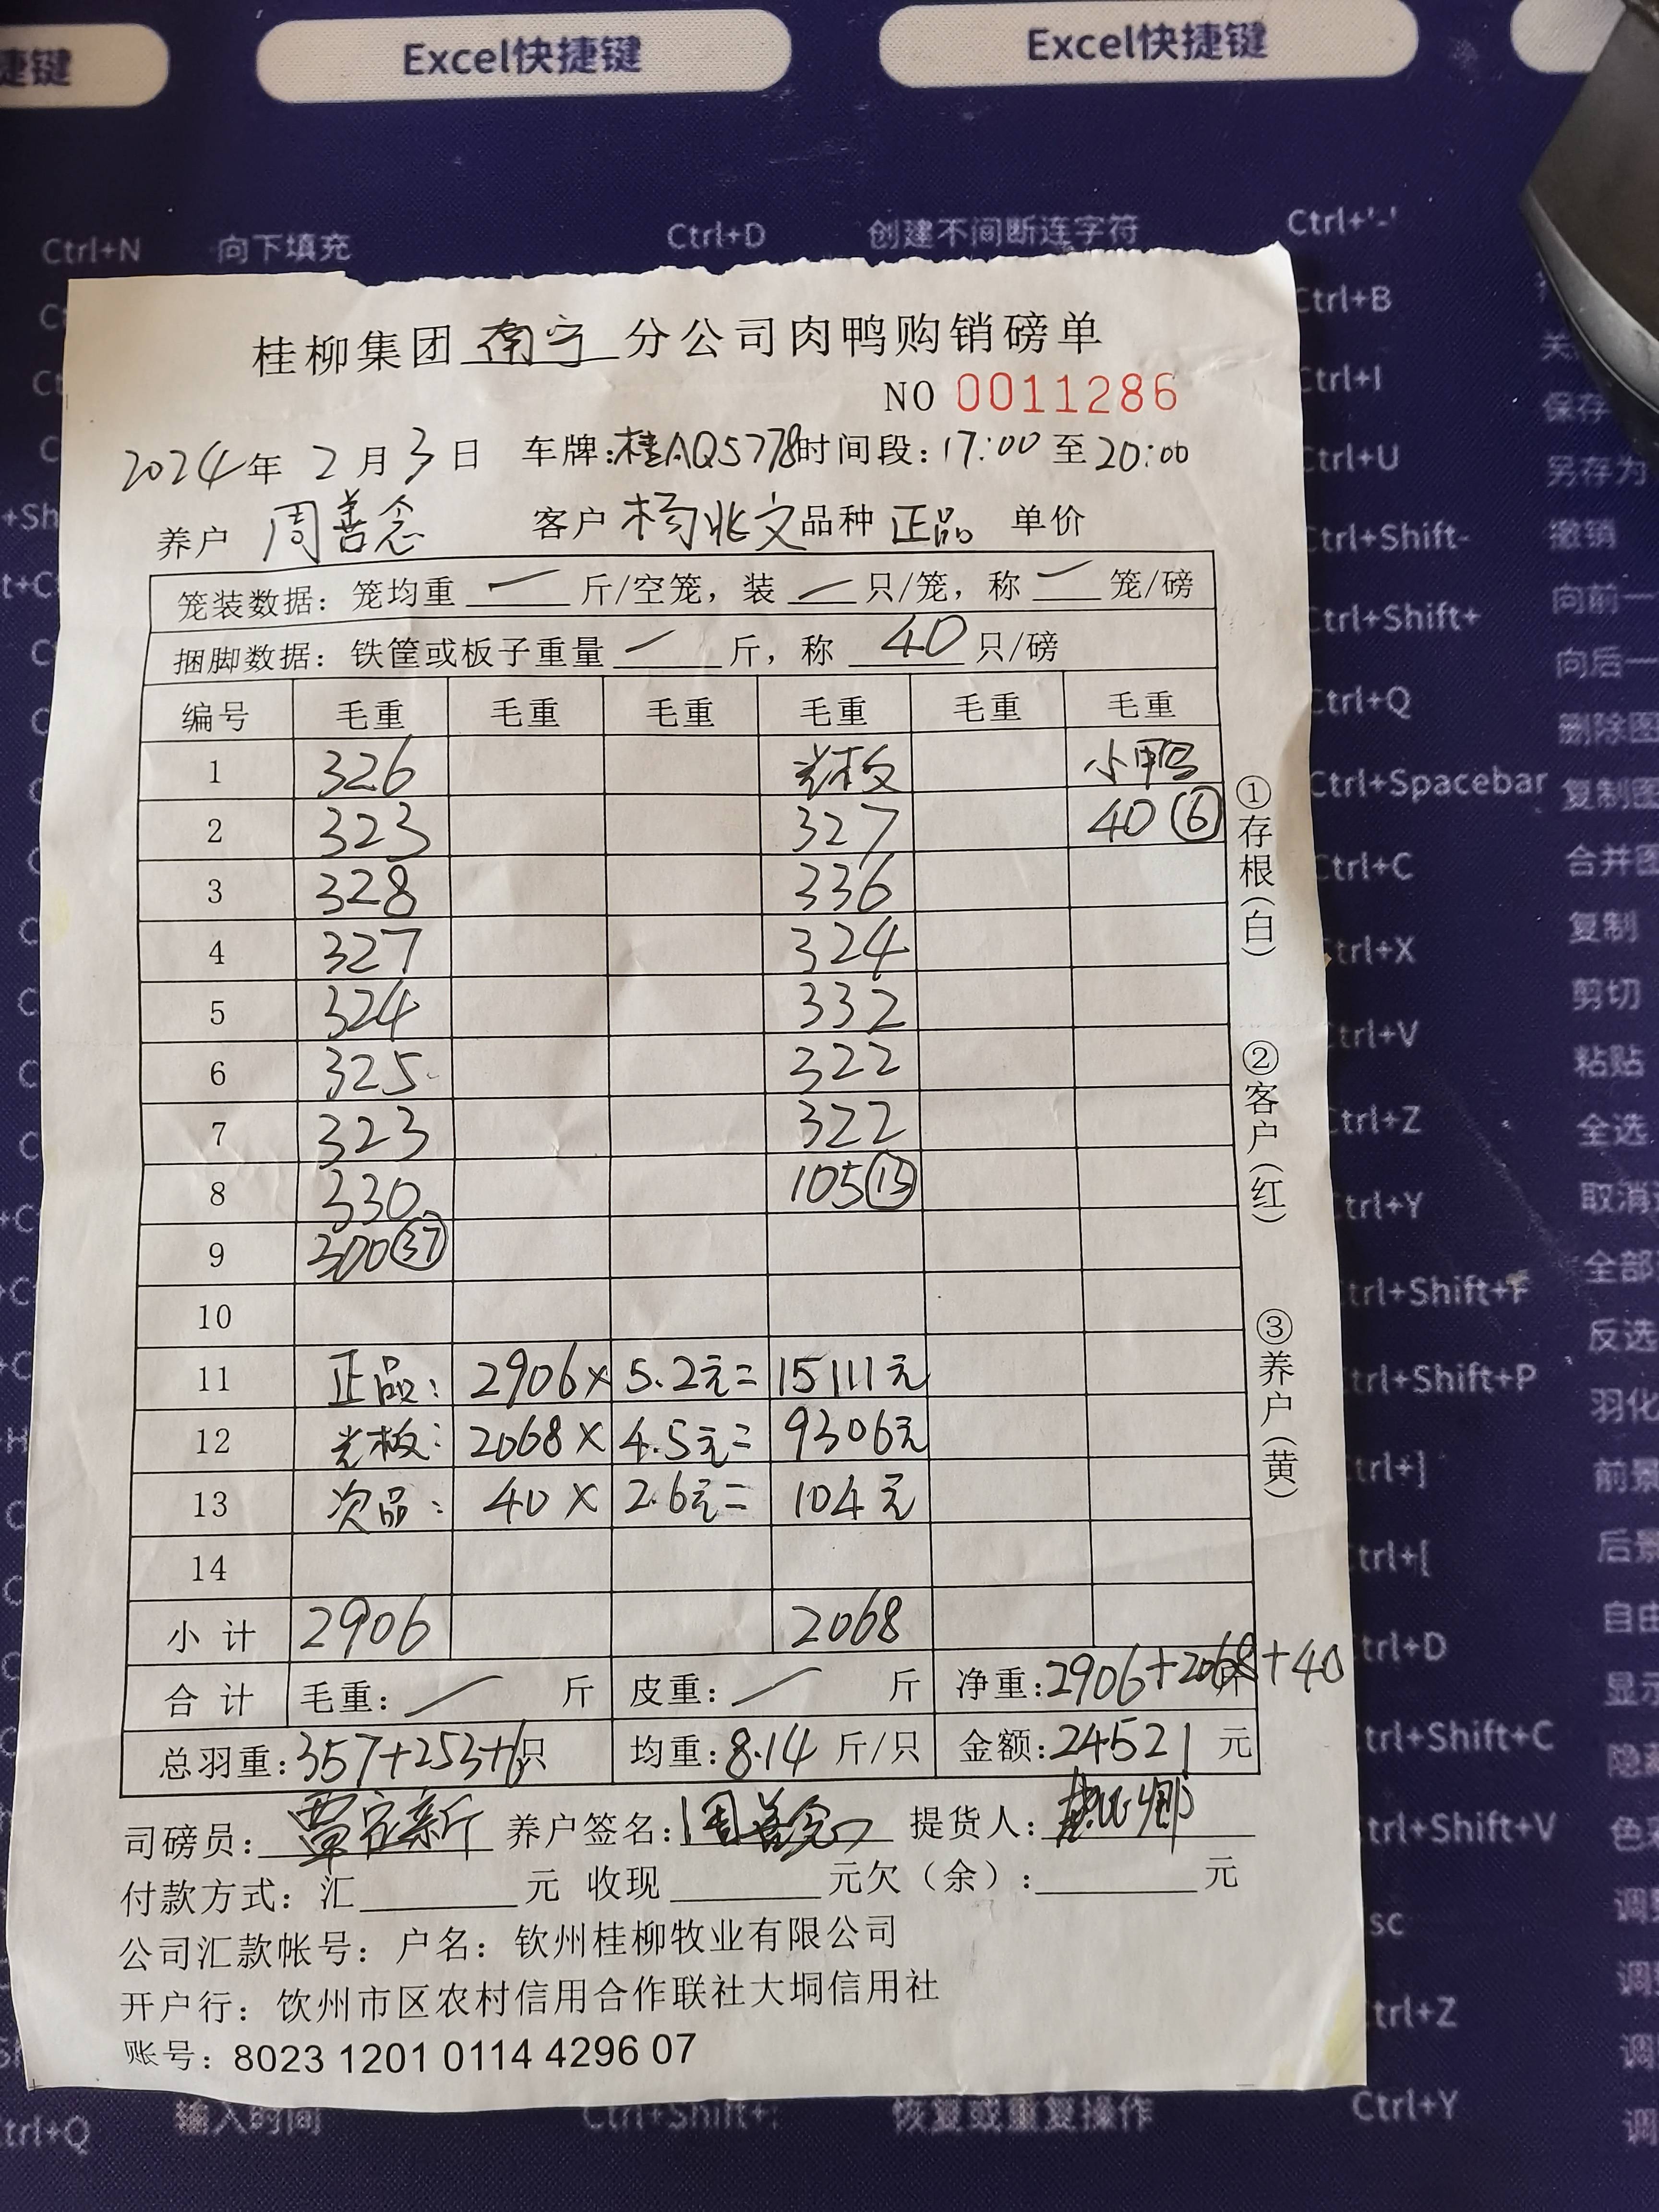 捷键 Excel快捷键 Excel快捷键
Ctrl+N 向下填充 Ctrl+D 创建不间断连字符 Ctrl+'-'
桂柳集团 南宁 分公司肉鸭购销磅单
NO 0011286
2024年 2月 3日 车牌:桂AQ5778 时间段:17:00 至 20:00
养户 周善念 客户 杨兆文 品种 正品 单价
笼装数据: 笼均重 — 斤/空笼, 装 — 只/笼, 称 — 笼/磅
捆脚数据: 铁筐或板子重量 — 斤, 称 40 只/磅
编号 毛重 毛重 毛重 毛重 毛重 毛重
1 326 光板 小鸭
2 323 327 40 ⑥
3 328 336
4 327 324
5 324 332
6 325 322
7 323 322
8 330 105 ⑬
9 300 ㊲
10
11 正品: 2906× 5.2元= 15111元
12 光板: 2068× 4.5元= 9306元
13 次品: 40× 2.6元= 104元
14
小计 2906 2068
合计 毛重: — 斤 皮重: — 斤 净重:2906+2068+40
总羽重:357+253+6只 均重:8.14 斤/只 金额:24521 元
司磅员: 养户签名:周善念 提货人:
付款方式: 汇 元 收现 元欠(余): 元
公司汇款帐号: 户名: 钦州桂柳牧业有限公司
开户行: 钦州市区农村信用合作联社大垌信用社
账号: 8023 1201 0114 4296 07
①存根(白)
②客户(红)
③养户(黄)
Ctrl+B
Ctrl+I
保存
Ctrl+U
另存为
Ctrl+Shift-
撤销
Ctrl+Shift+
向前一
向后一
Ctrl+Q
删除图
Ctrl+Spacebar
复制图
Ctrl+C
合并图
复制
Ctrl+X
剪切
Ctrl+V
粘贴
Ctrl+Z
全选
Ctrl+Y
取消
全部
Ctrl+Shift+F
反选
Ctrl+Shift+P
羽化
trl+]
前景
trl+[
后景
自由
trl+D
显示
Ctrl+Shift+C
隐藏
trl+Shift+V
色彩
sc
trl+Z
trl+Q 输入时间 Ctrl+Shift+: 恢复或重复操作 Ctrl+Y